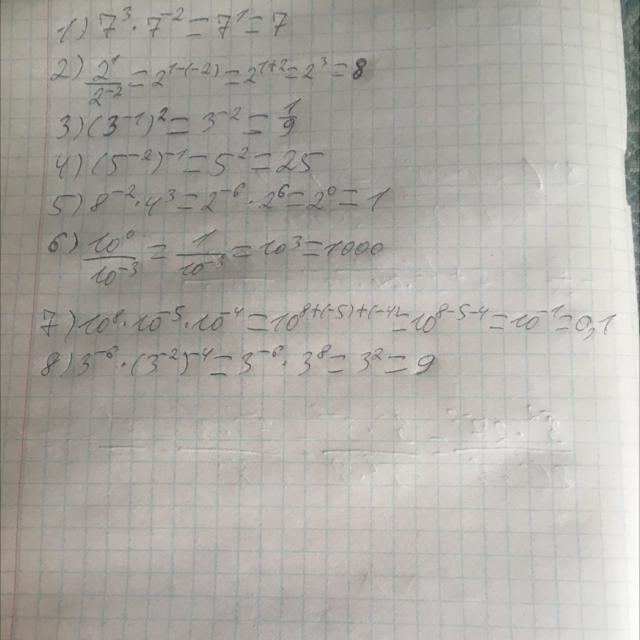 1) 7³ · 7² = 7¹ = 7
2) 2¹/2⁻² = 2¹⁻⁽⁻²⁾ = 2¹⁺² = 2³ = 8
3) (3⁻¹)² = 3⁻² = 1/9
4) (5⁻²)⁻¹ = 5² = 25
5) 8⁻² · 4³ = 2⁻⁶ · 2⁶ = 2⁰ = 1
6) 10⁰/10⁻³ = 1/10⁻³ = 10³ = 1000
7) 10⁸ · 10⁻⁵ · 10⁻⁴ = 10⁸⁺⁽⁻⁵⁾⁺⁽⁻⁴⁾ = 10⁸⁻⁵⁻⁴ = 10⁻¹ = 0,1
8) 3⁻⁶ · (3⁻²)⁻⁴ = 3⁻⁶ · 3⁸ = 3² = 9